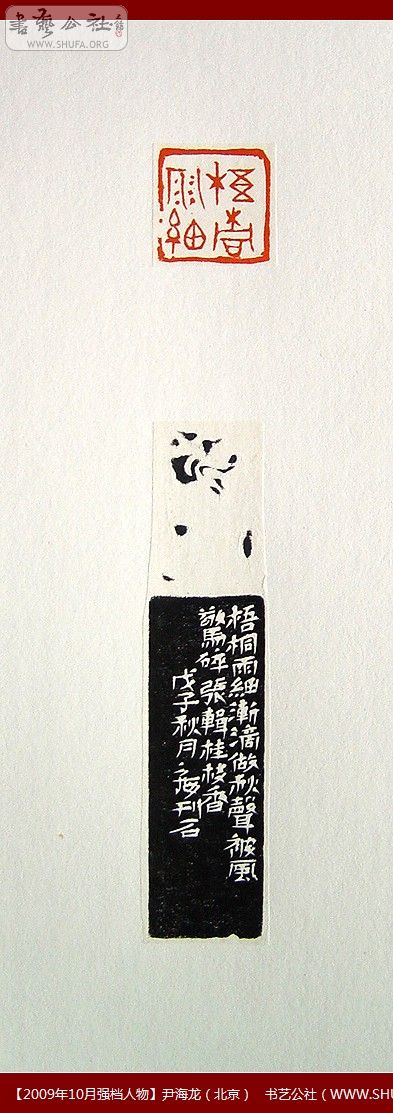 書藝公社
WWW.SHUFA.ORG
梧桐雨細
梧桐雨細漸滴做秋聲被風
驚碎張輯桂枝香
戊子秋月海刊石
【2009年10月强档人物】尹海龙（北京） 书艺公社（WWW.SHU